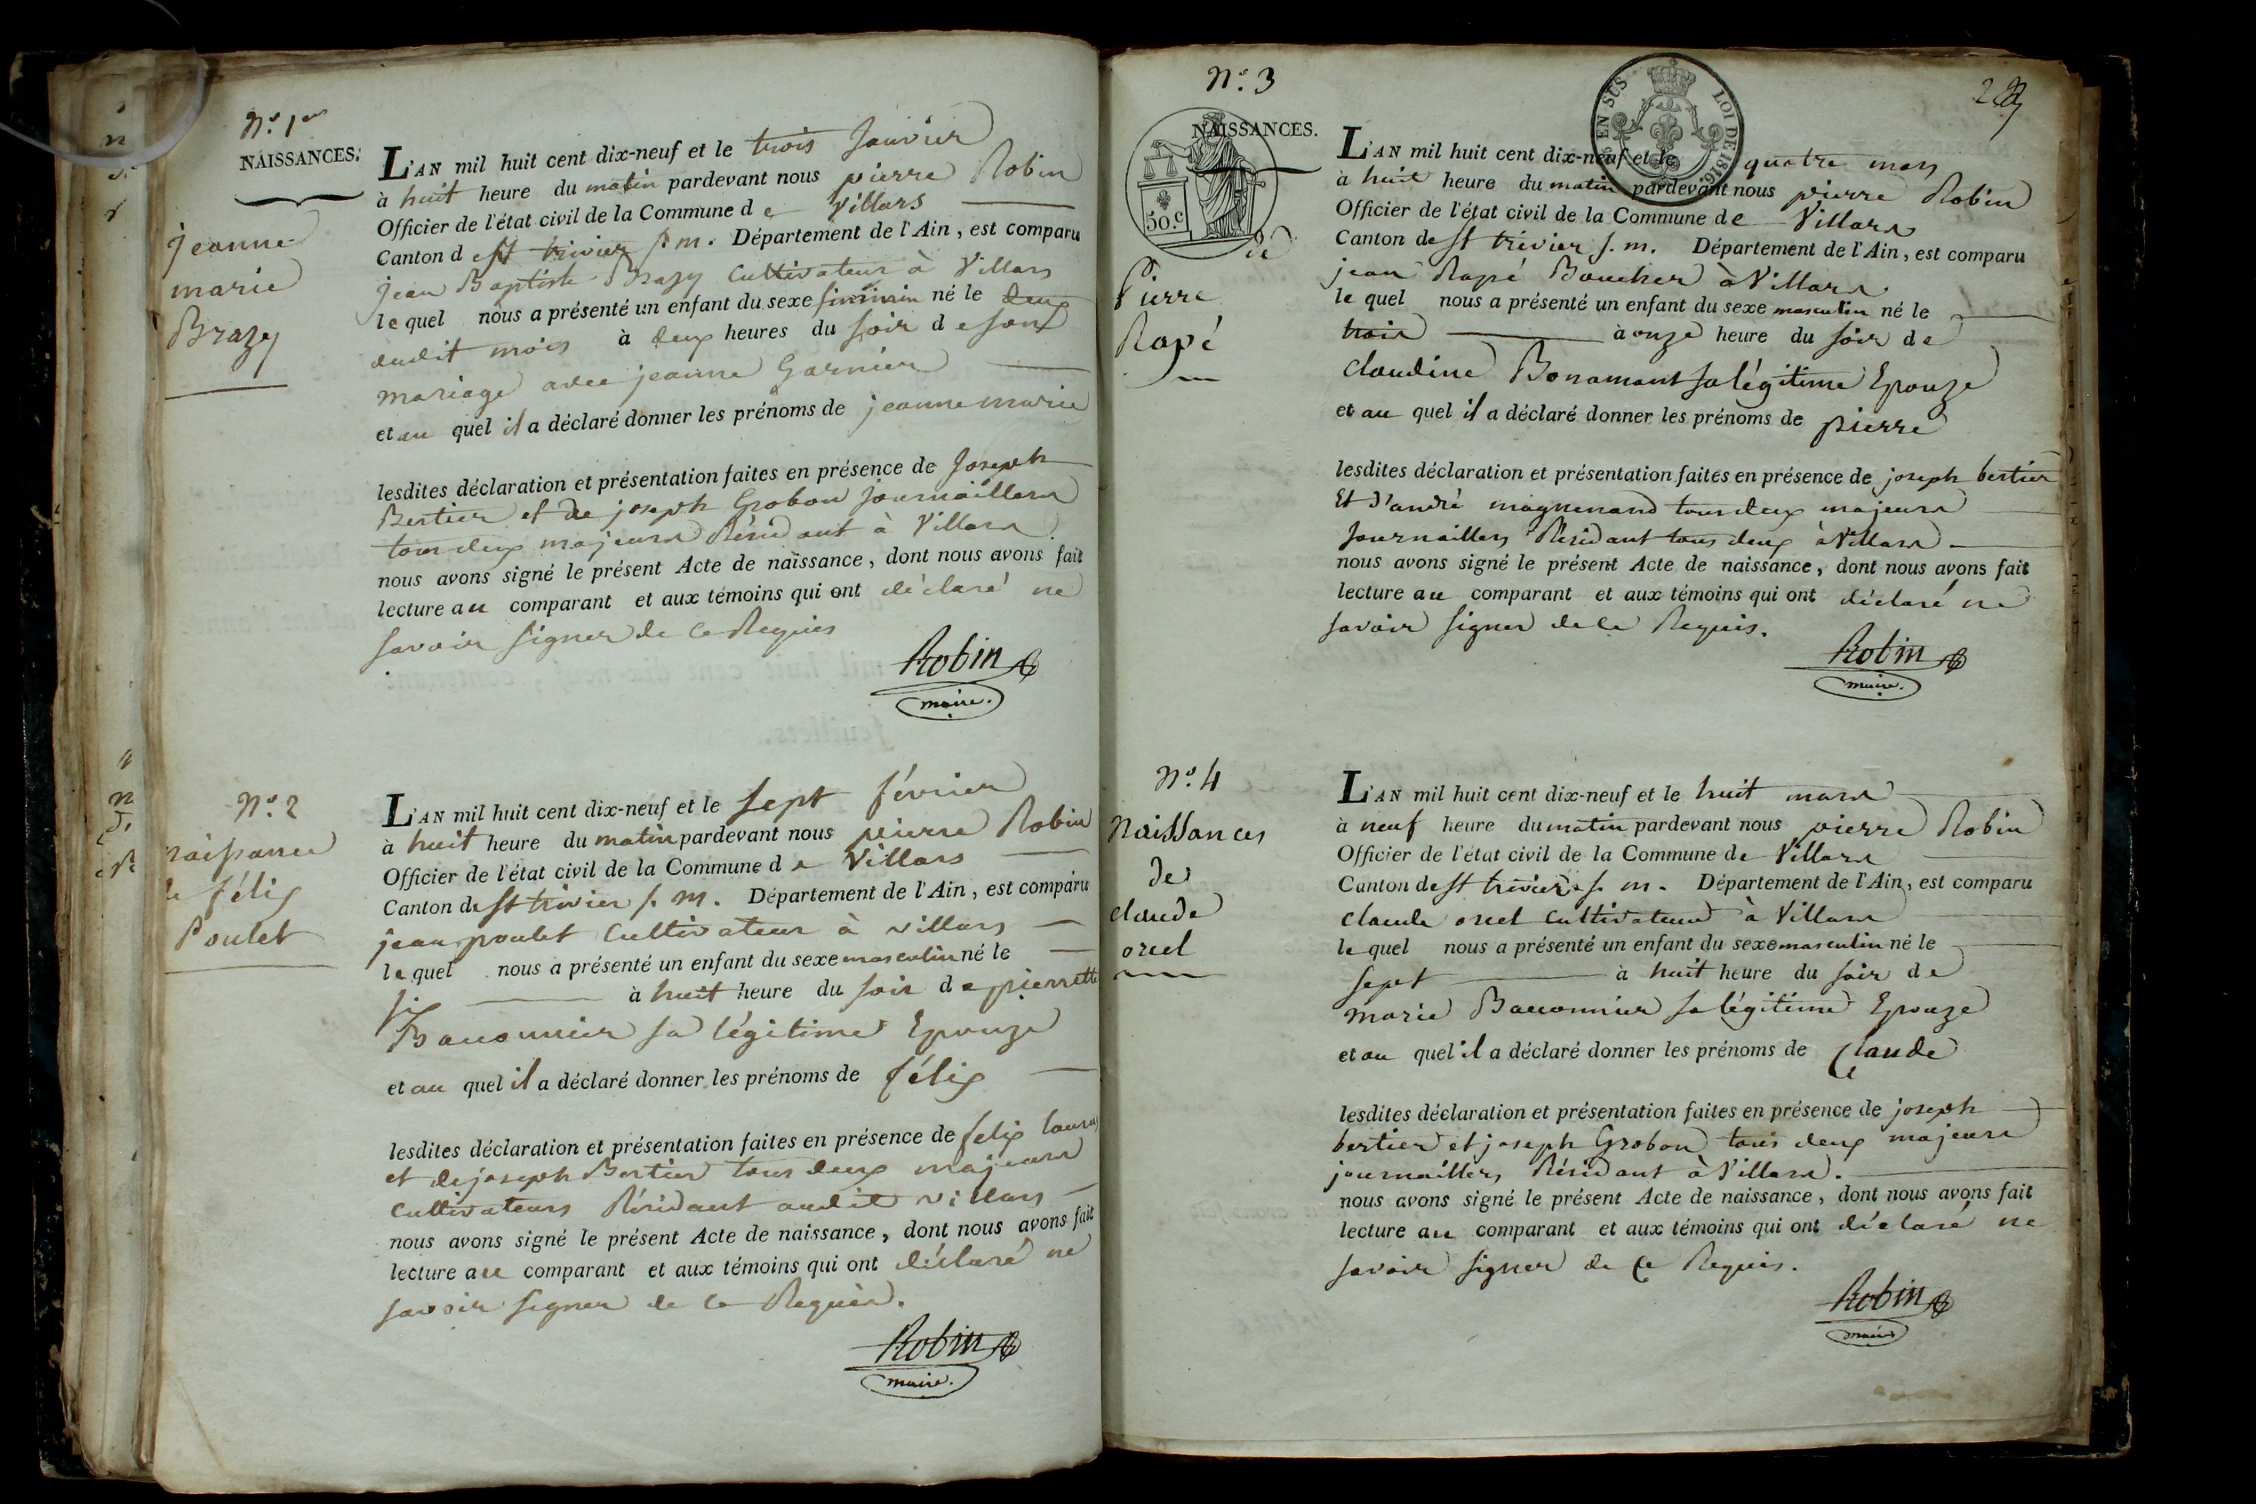 N.º 1er
NAISSANCES.
jeanne
marie
Brazy
L'AN mil huit cent dix-neuf et le trois Janvier
à huit heure du matin pardevant nous pierre Robin
Officier de l'état civil de la Commune de Villars
Canton de st trivier s. m. Département de l'Ain, est comparu
jean Baptiste Brazy Cultivateur à Villars
le quel nous a présenté un enfant du sexe féminin né le deux
dudit mois à deux heures du soir de son
mariage avec jeanne Garnier
et au quel il a déclaré donner les prénoms de jeanne marie
lesdites déclaration et présentation faites en présence de Joseph
Bertier et de joseph Grobon journaillers
tous deux majeurs Résidant à Villars
nous avons signé le présent Acte de naissance, dont nous avons fait
lecture au comparant et aux témoins qui ont déclaré ne
savoir signer de ce Requis
Robin
maire.
N.º 2
naissance
de félix
Poulet
L'AN mil huit cent dix-neuf et le sept février
à huit heure du matin pardevant nous pierre Robin
Officier de l'état civil de la Commune de Villars
Canton de st trivier s. m. Département de l'Ain, est comparu
jean poulet Cultivateur à villars
le quel nous a présenté un enfant du sexe masculin né le
six à huit heure du soir de pierrette
Bauonnier sa légitime Epouze
et au quel il a déclaré donner les prénoms de félix
lesdites déclaration et présentation faites en présence de felix
et de joseph Bertier tous deux majeurs
Cultivateurs Résidant audit villars
nous avons signé le présent Acte de naissance, dont nous avons fait
lecture au comparant et aux témoins qui ont déclaré ne
savoir signer de ce Requis.
Robin
maire.
N.º 3
EN SUS LOI DE 1816.
NAISSANCES.
50.c
de
Pierre
Rapé
L'AN mil huit cent dix-neuf et le quatre mars
à huit heure du matin pardevant nous pierre Robin
Officier de l'état civil de la Commune de Villars
Canton de st trivier s. m. Département de l'Ain, est comparu
jean Rapé Boucher à Villars
le quel nous a présenté un enfant du sexe masculin né le
trois à onze heure du soir de
claudine Bonamant sa légitime Epouze
et au quel il a déclaré donner les prénoms de pierre
lesdites déclaration et présentation faites en présence de joseph bertier
Et d'andré magnenand tous deux majeurs
Journaillers Résidant tous deux à Villars
nous avons signé le présent Acte de naissance, dont nous avons fait
lecture au comparant et aux témoins qui ont déclaré ne
savoir signer de ce Requis.
Robin
maire.
N.º 4
Naissances
de
claude
oril
L'AN mil huit cent dix-neuf et le huit mars
à neuf heure du matin pardevant nous pierre Robin
Officier de l'état civil de la Commune de Villars
Canton de st trivier s. m. Département de l'Ain, est comparu
claude oril cultivateur à Villars
le quel nous a présenté un enfant du sexe masculin né le
sept à huit heure du soir de
marie Bauonnier sa légitime Epouze
et au quel il a déclaré donner les prénoms de Claude
lesdites déclaration et présentation faites en présence de joseph
bertier et joseph Grobon tous deux majeurs
journaillers Résidant à Villars.
nous avons signé le présent Acte de naissance, dont nous avons fait
lecture au comparant et aux témoins qui ont déclaré ne
savoir signer de ce Requis.
Robin
maire